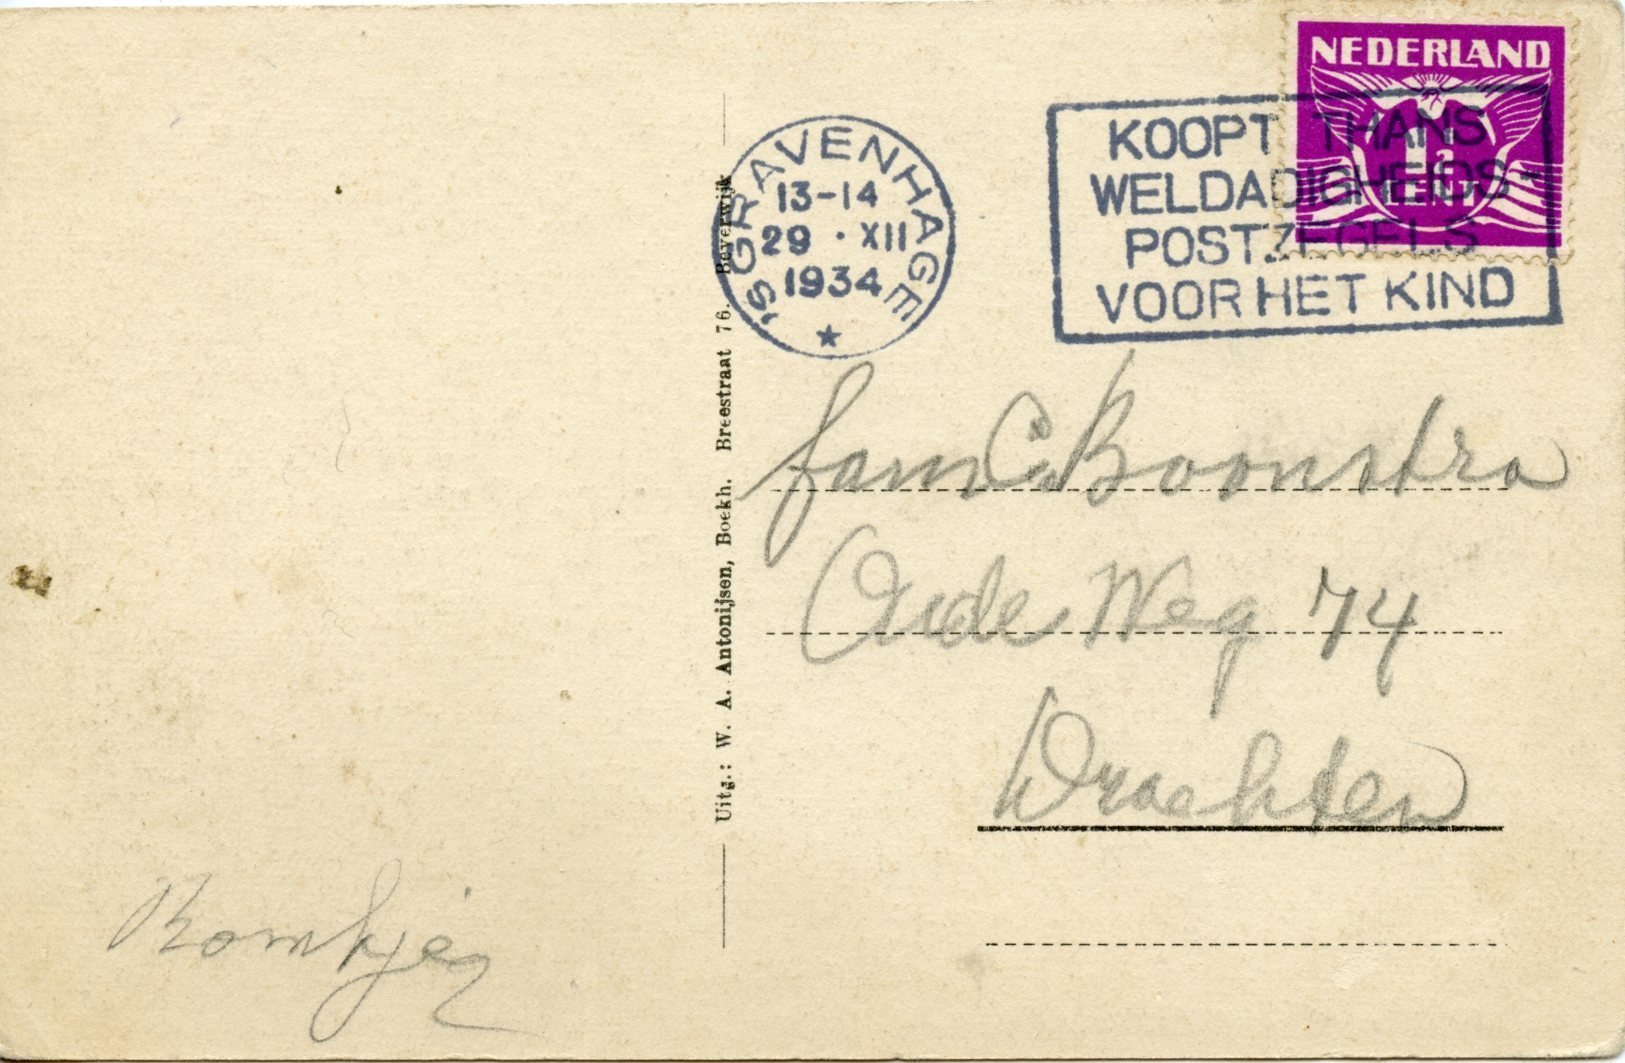 NEDERLAND
1½
CENT
'SGRAVENHAGE
13-14
29 · XII
1934
KOOPT THANS
WELDADIGHEIDS-
POSTZEGELS
VOOR HET KIND
Uitg.: W. A. Antonijsen, Boekh. Breestraat 76. Beverwijk
fam C. Boonstra
Oude Weg 74
Drachten